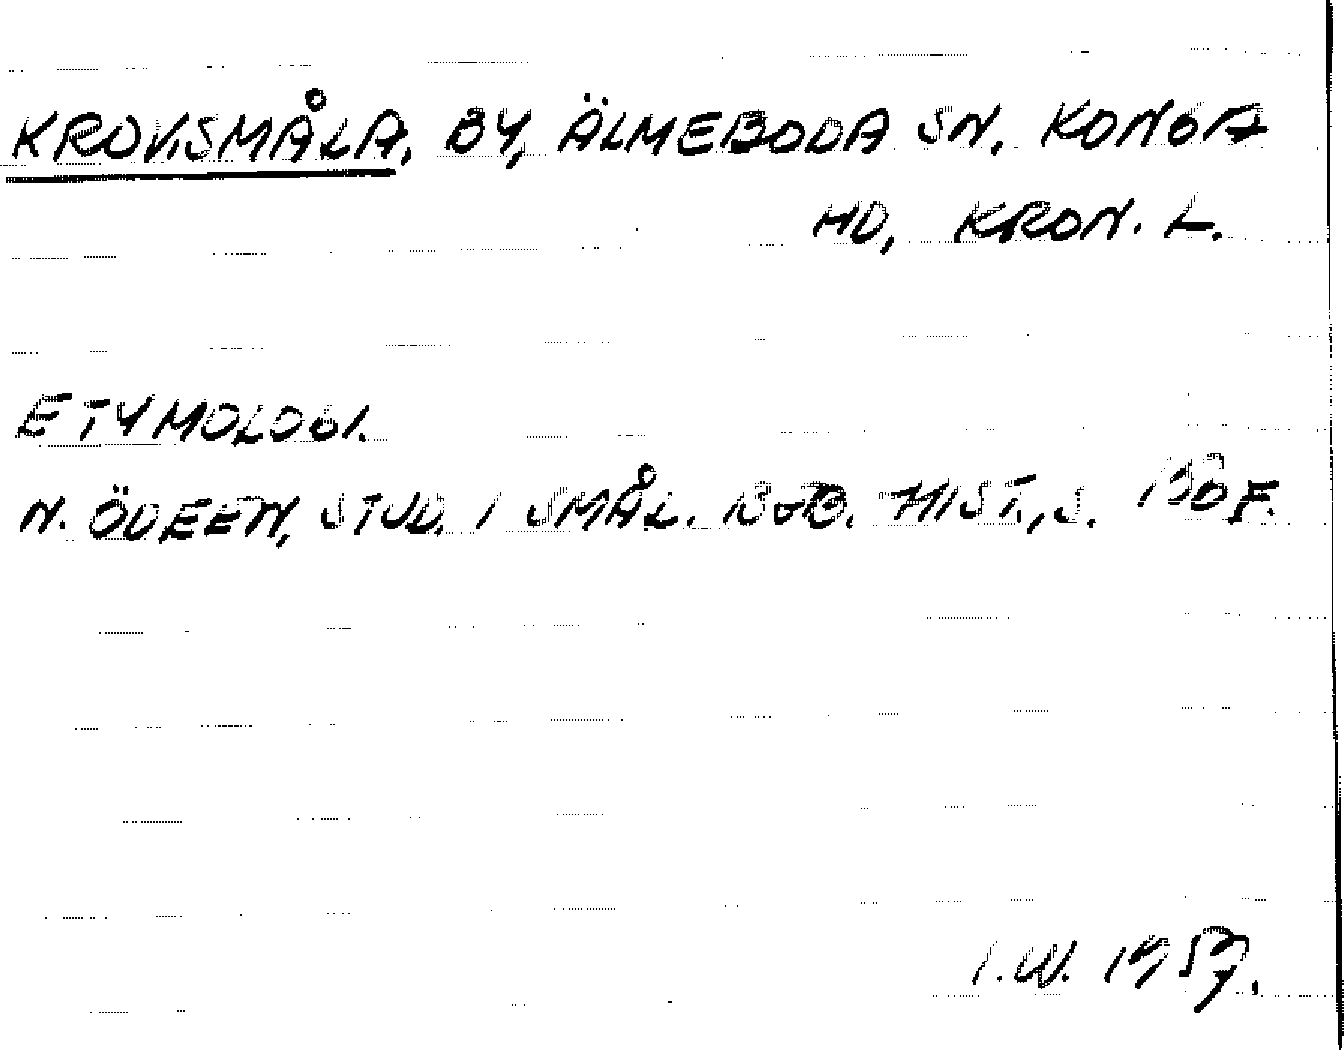 KROKSMÅLA, BY, ÄLMEBODA SN, KONGA
HD, KRON. L.
ETYMOLOGI.
N. ÖDEEN, STUD. I SMÅL. BEB. HIST., S.
I.W. 1957.